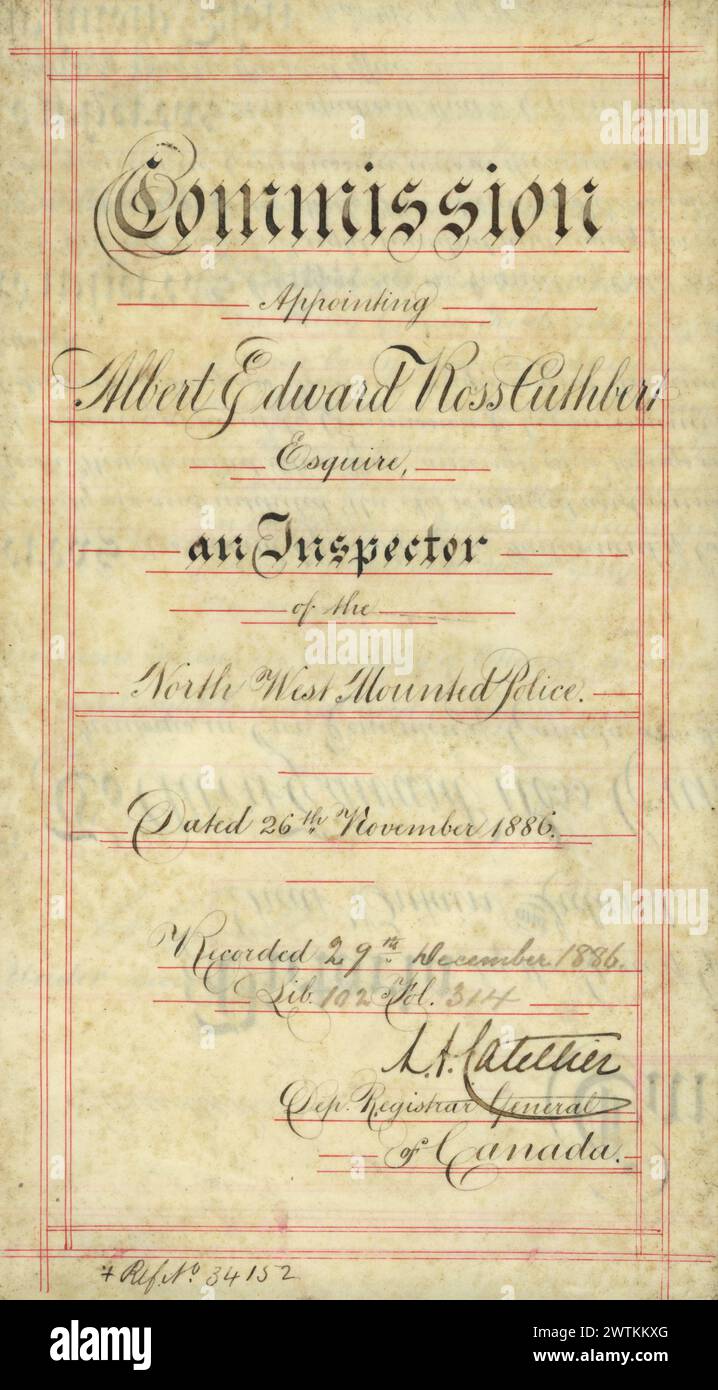 Commission
Appointing
Albert Edward Ross Cuthbert
Esquire,
an Inspector
of the
North West Mounted Police.
Dated 26th November 1886.
Recorded 29th December 1886.
Lib. 102 Fol. 314
L. A. Catellier
Dep. Registrar General
of Canada.
+ Ref. No 34152
alamy
Image ID: 2WTKKXG
www.alamy.com